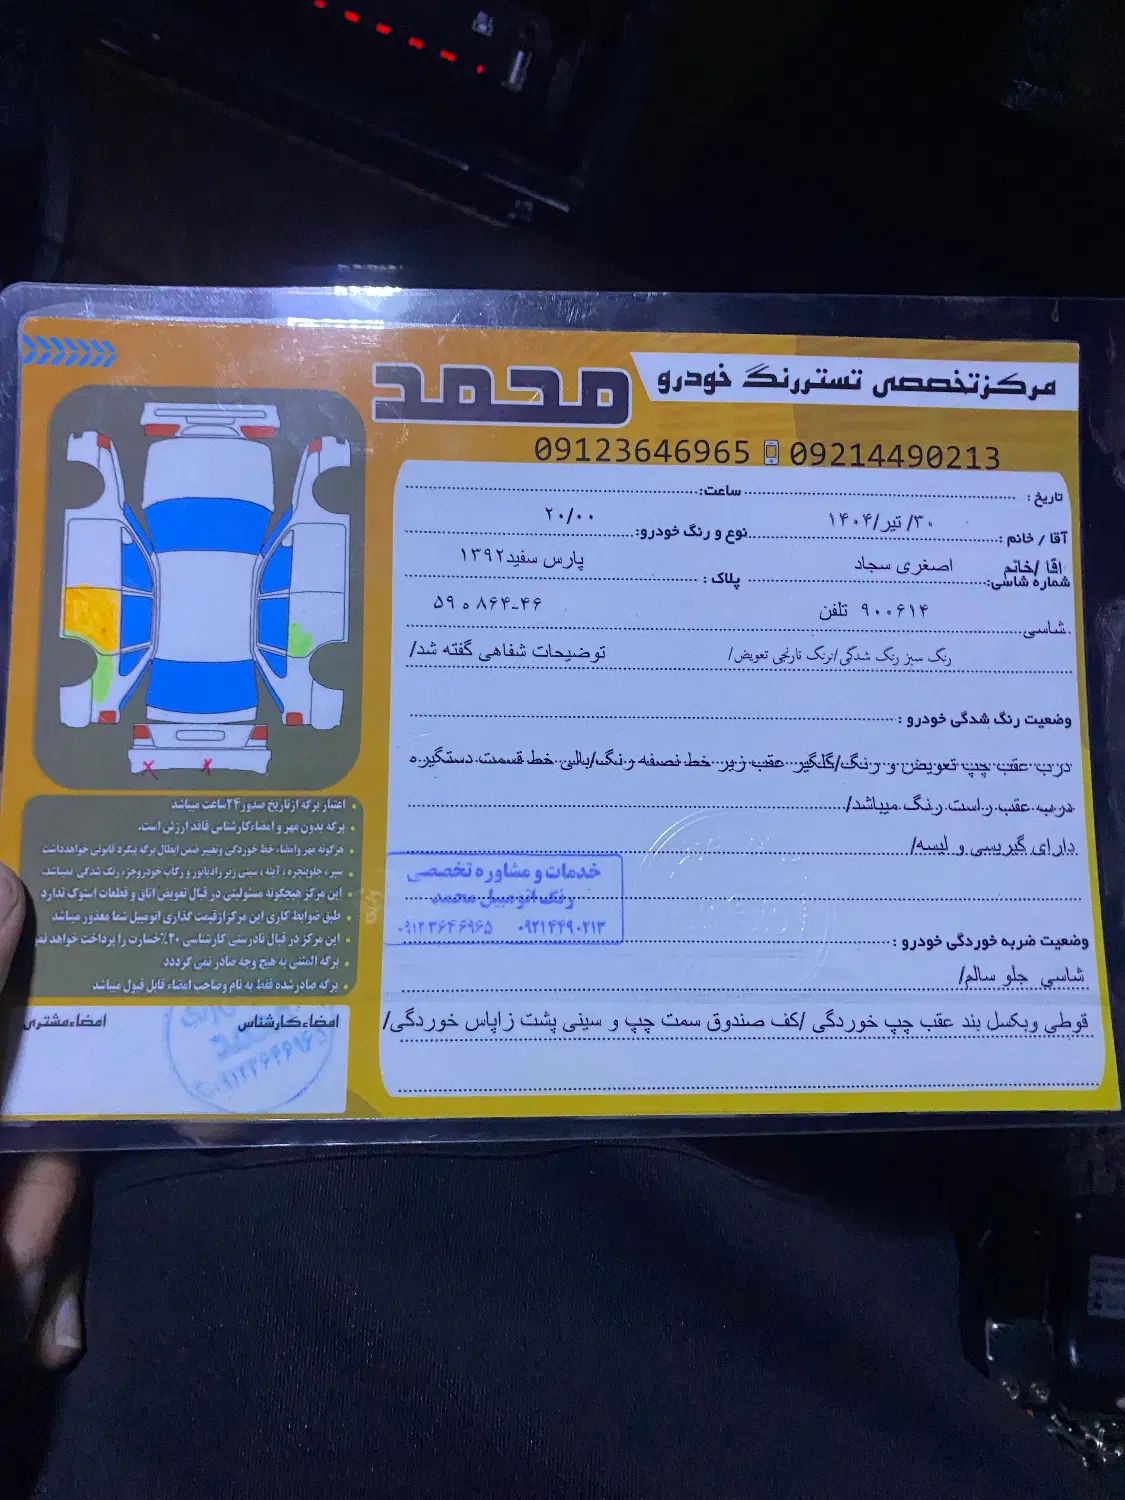 مرکزتخصصی تستررنگ خودرو
محمد
09123646965 09214490213
تاریخ: ساعت:
۳۰/تیر/۱۴۰۴ ۲۰/۰۰
آقا / خانم: نوع و رنگ خودرو:
اقا /خانم اصغری سجاد پارس سفید۱۳۹۲
شماره شاسی: پلاک:
۹۰۰۶۱۴ تلفن ۵۹ ه ۸۶۴-۴۶
شاسی
رنگ سبز رنگ شدگی/نرنگ نارنجی تعویض/ توضیحات شفاهی گفته شد/
وضعیت رنگ شدگی خودرو:
درب عقب چپ تعویض و رنگ/گلگیر عقب زیر خط نصفه رنگ/بالی خط قسمت دستگیره
درب عقب راست رنگ میباشد/
دارای گیریسی و لیسه/
خدمات و مشاوره تخصصی
رنگ اتومبیل محمد
۰۹۱۲۳۶۴۶۹۶۵ ۰۹۲۱۴۴۹۰۲۱۳
وضعیت ضربه خوردگی خودرو:
شاسی جلو سالم/
قوطی وبکسل بند عقب چپ خوردگی /کف صندوق سمت چپ و سینی پشت زاپاس خوردگی/
اعتبار برگه ازتاریخ صدور۲۴ساعت میباشد
برگه بدون مهر و امضاءکارشناس فاقد ارزش است.
هرگونه مهر وامضاء خط خوردگی وتغییر ضمن ابطال برگه پیگرد قانونی خواهدداشت
سپر، جلوپنجره ، آینه ، سینی زیر رادیاتور و رکاب خودروجزء رنگ شدگی نمیباشد.
این مرکز هیچگونه مسئولیتی در قبال تعویض اتاق و قطعات استوک ندارد
طبق ضوابط کاری این مرکزازقیمت گذاری اتومبیل شما معذور میباشد
این مرکز در قبال نادرستی کارشناسی ۲۰٪خسارت را پرداخت خواهد نمو
برگه المثنی به هیچ وجه صادر نمی گرددد
برگه صادرشده فقط به نام وصاحب امضاء قابل قبول میباشد
امضاءکارشناس امضاءمشتری